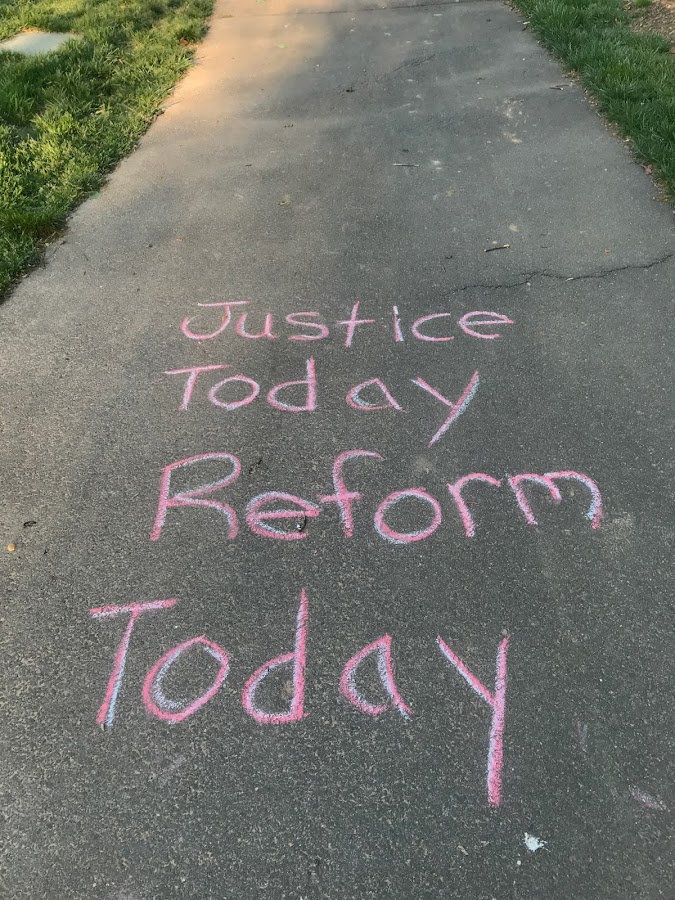 Justice
Today
Reform
Today